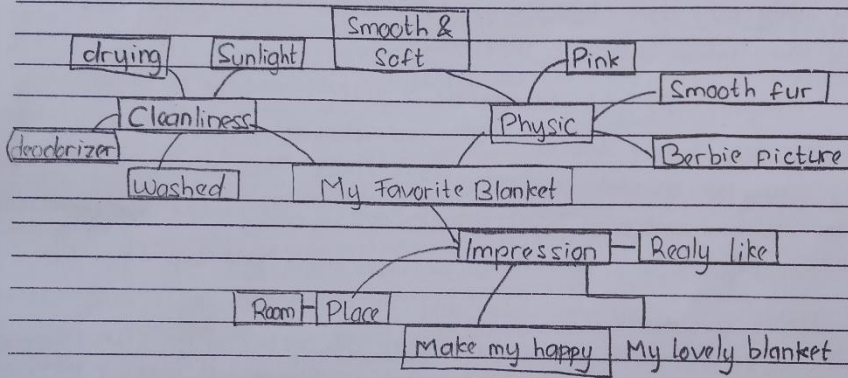 Smooth &
Soft
drying
Sunlight
Pink
Smooth fur
Cleanliness
Physic
deodorizer
Berbie picture
Washed
My Favorite Blanket
Impression
Realy like
Room
Place
Make my happy
My lovely blanket